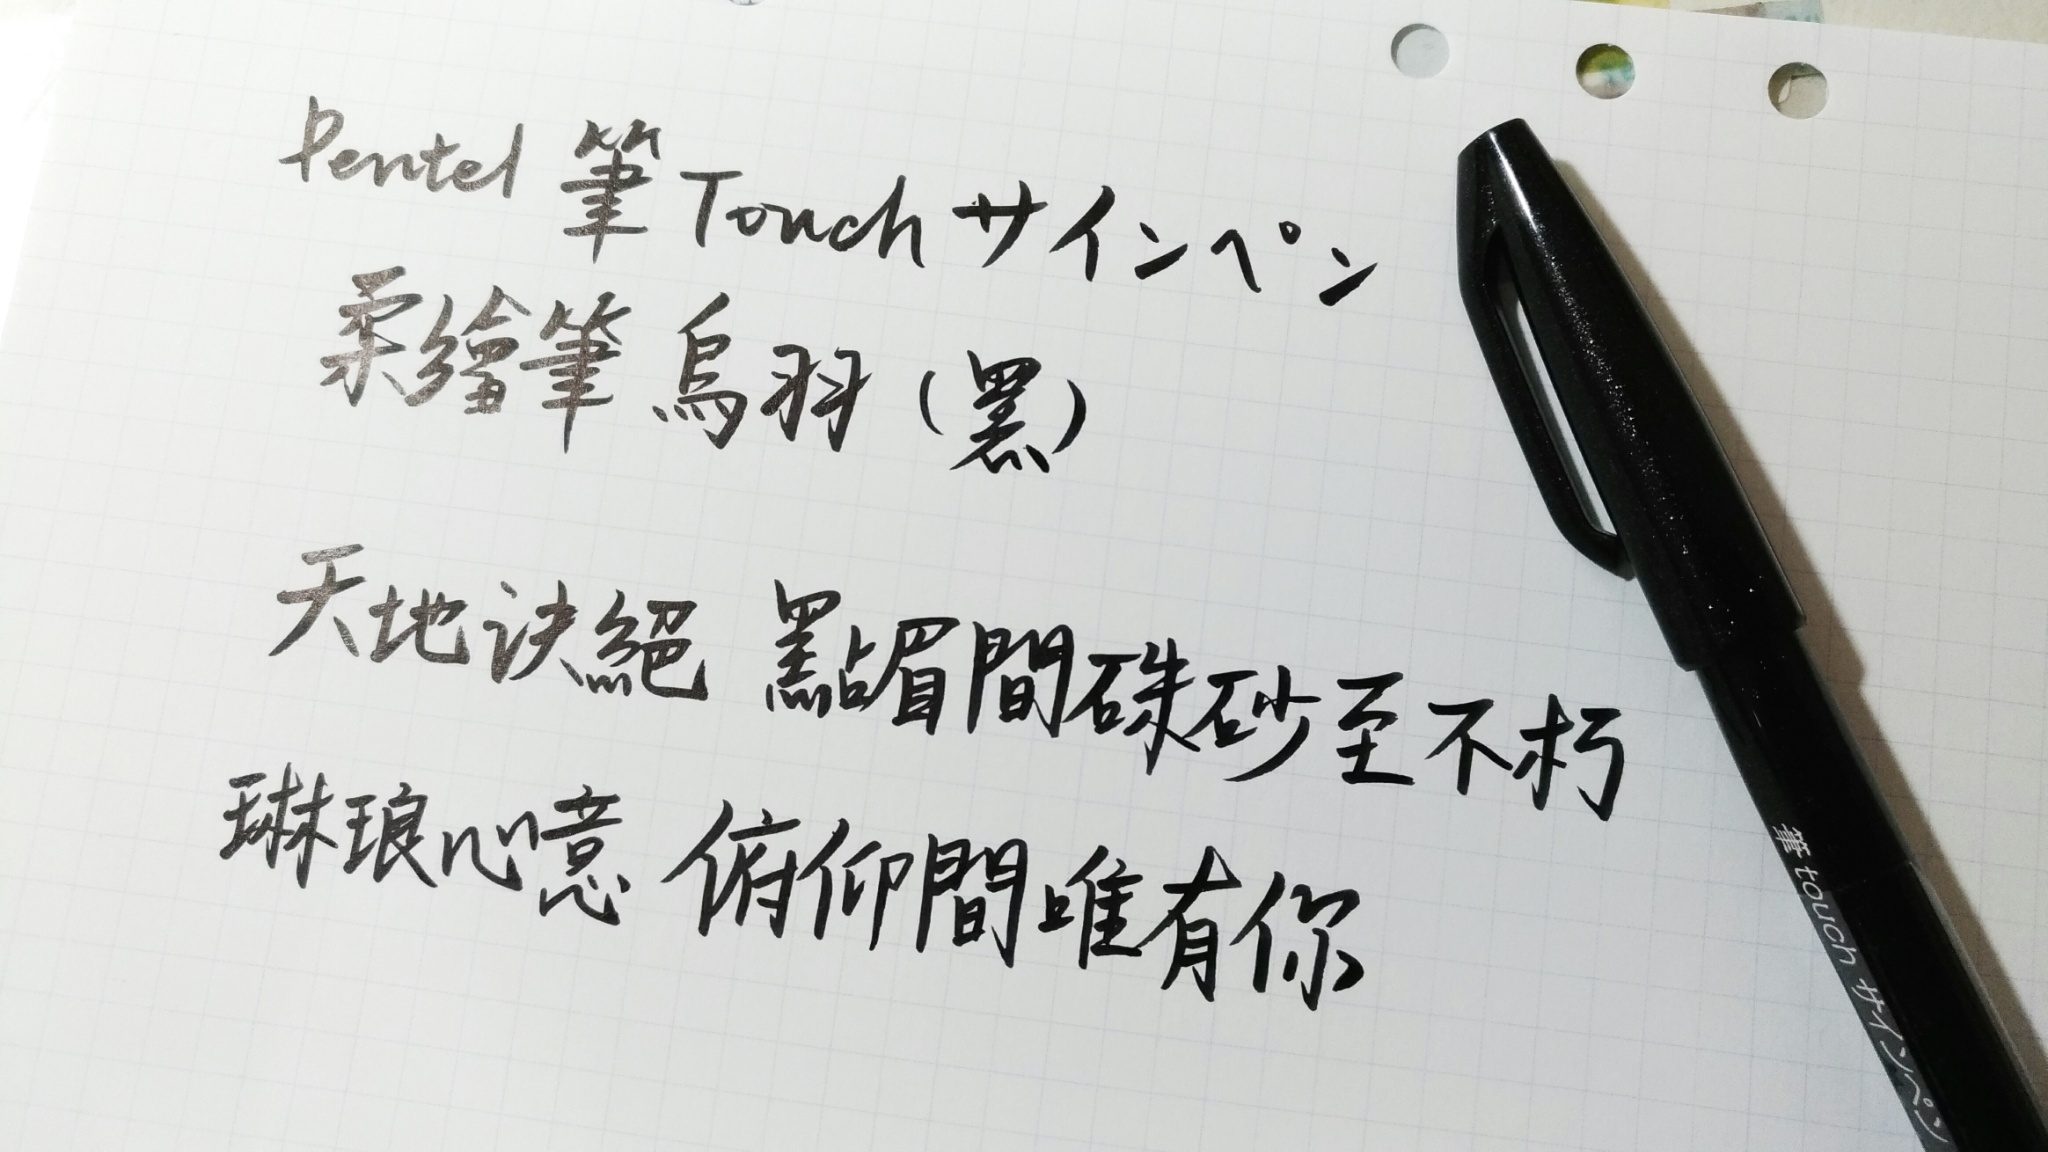 Pentel 筆 Touch サインペン
柔繪筆 烏羽 (黑)
天地訣絕 點眉間硃砂至不朽
琳琅心憶 俯仰間唯有你
筆touch サインペン